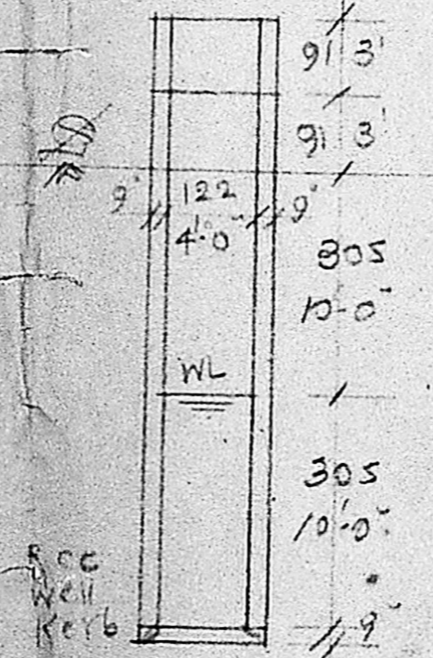 91 3'
91 3'
9" 122 9"
4'-0"
305
10-0"
WL
305
10'-0"
RCC
Well
Kerb
9"